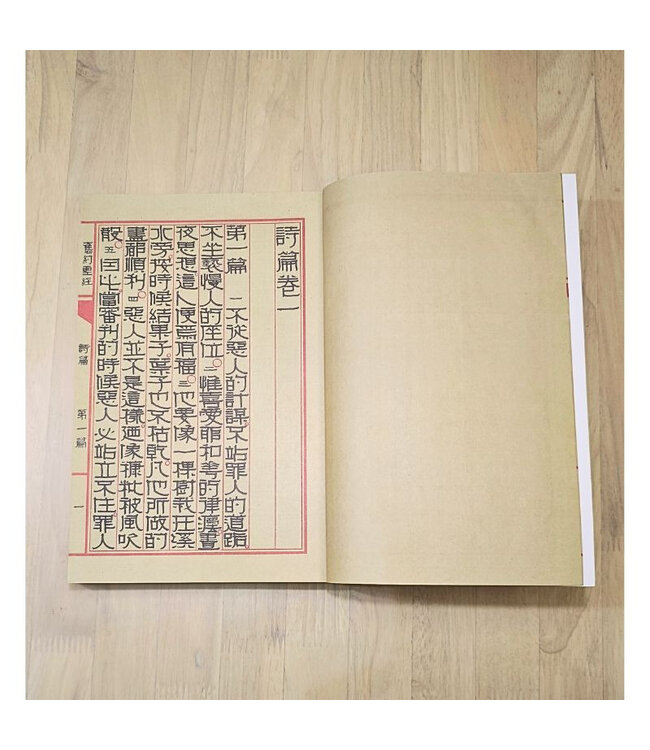 詩篇卷一
第一篇 一 不從惡人的計謀不站罪人的道路
不坐褻慢人的座位。二惟喜愛耶和華的律灋晝
夜思想這人便爲有福。三他要像一棵樹栽在溪
水旁按時候結果子葉子也不枯乾凡他所做的
盡都順利。四惡人並不是這樣迺像糠秕被風吹
散。五因此當審判的時候惡人必站立不住罪人
舊約聖經 詩篇 第一篇 一